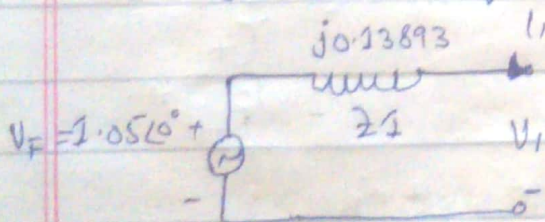 j0.13893
I1
VF = 1.05∠0° +
Z1
V1
-
-